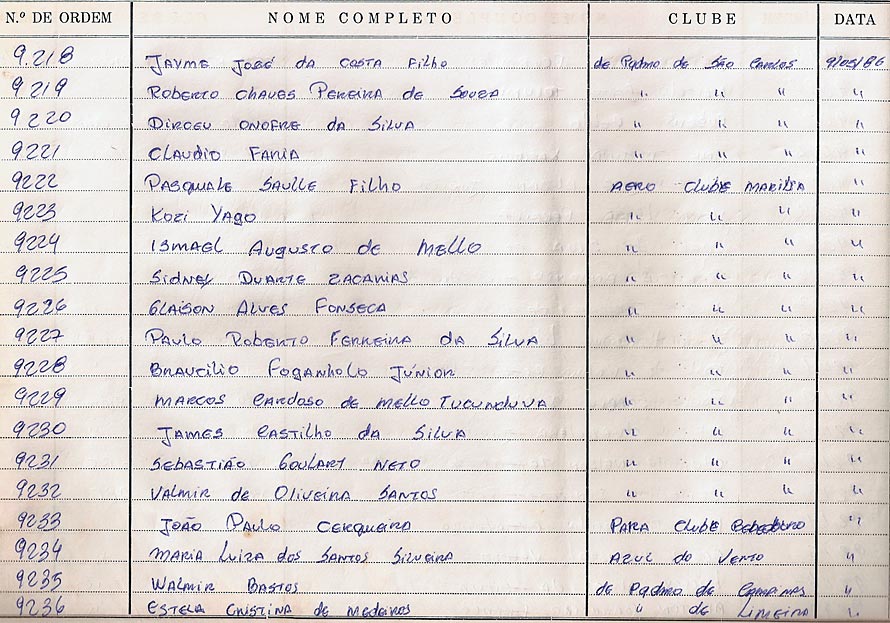 N.º DE ORDEM NOME COMPLETO CLUBE DATA
9.218 JAYME JOSÉ DA COSTA FILHO de Pqdmo de São CARLOS 9/05/86
9219 ROBERTO CHAVES PEREIRA de SOUZA " " " "
9220 DIRCEU ONOFRE da SILVA " " " "
9221 CLAUDIO FARIA " " " "
9222 PASQUALE SAULLE FILHO AERO CLUBE MARILIA "
9223 KOZI YAGO " " " "
9224 ISMAEL AUGUSTO de MELLO " " " "
9225 SIDNEY DUARTE ZACARIAS " " " "
9226 GLAISON ALVES FONSECA " " " "
9227 PAULO ROBERTO FERREIRA da SILVA " " " "
9228 BRAUCILIO FOGANHOLO JÚNIOR " " " "
9229 MARCOS CARDOSO de MELLO TUCUNDUVA " " " "
9230 JAMES CASTILHO da SILVA " " " "
9231 SEBASTIÃO GOULART NETO " " " "
9232 VALMIR de OLIVEIRA SANTOS " " " "
9233 JOÃO PAULO CERQUEIRA PARA CLUBE "
9234 MARIA LUIZA DOS SANTOS SILVEIRA AZUL do VENTO "
9235 WALMIR BASTOS de Pqdmo de CAMPINAS "
9236 ESTELA CRISTINA DE MEDEIROS " de LIMEIRA "